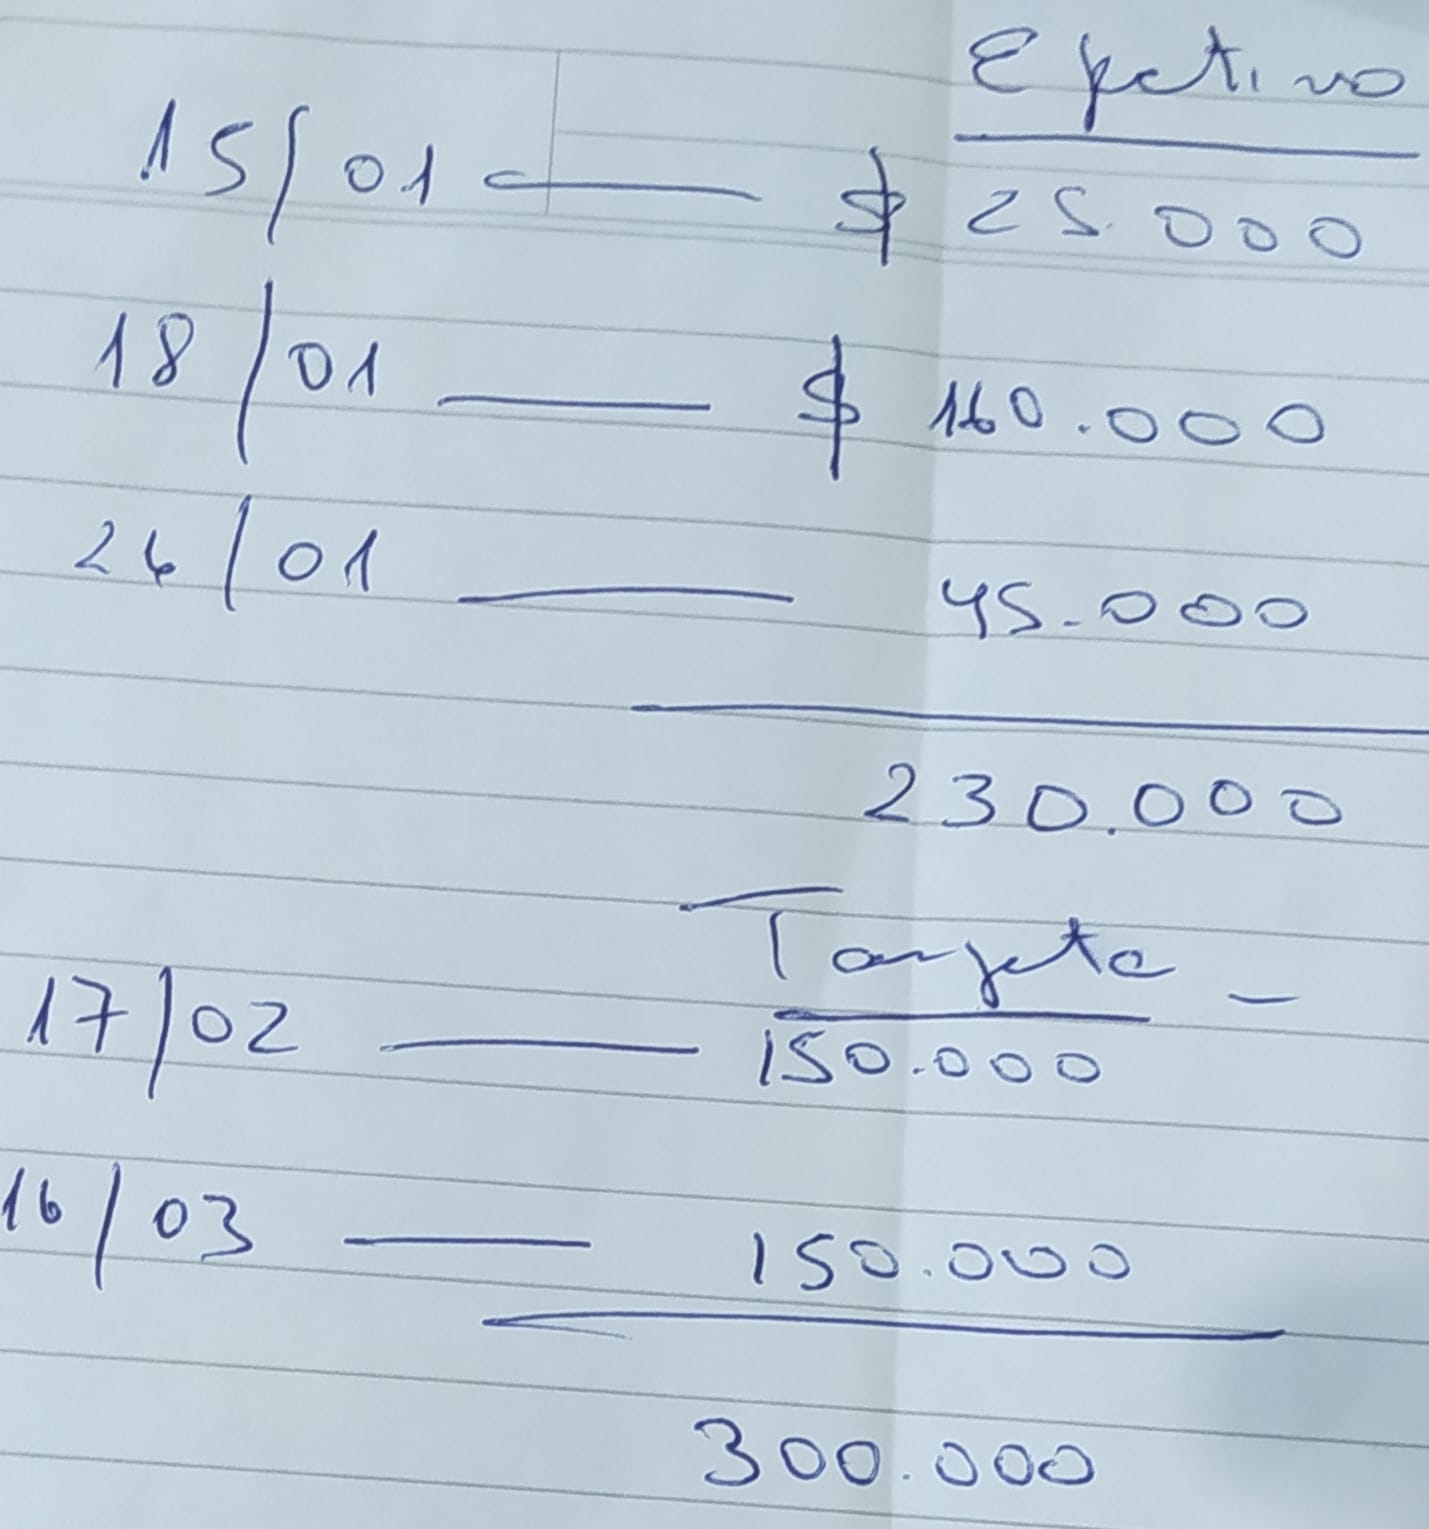 Efectivo
15/01 — $ 25.000
18/01 — $ 160.000
26/01 — 45.000
230.000
Tarjeta -
17/02 — 150.000
16/03 — 150.000
300.000